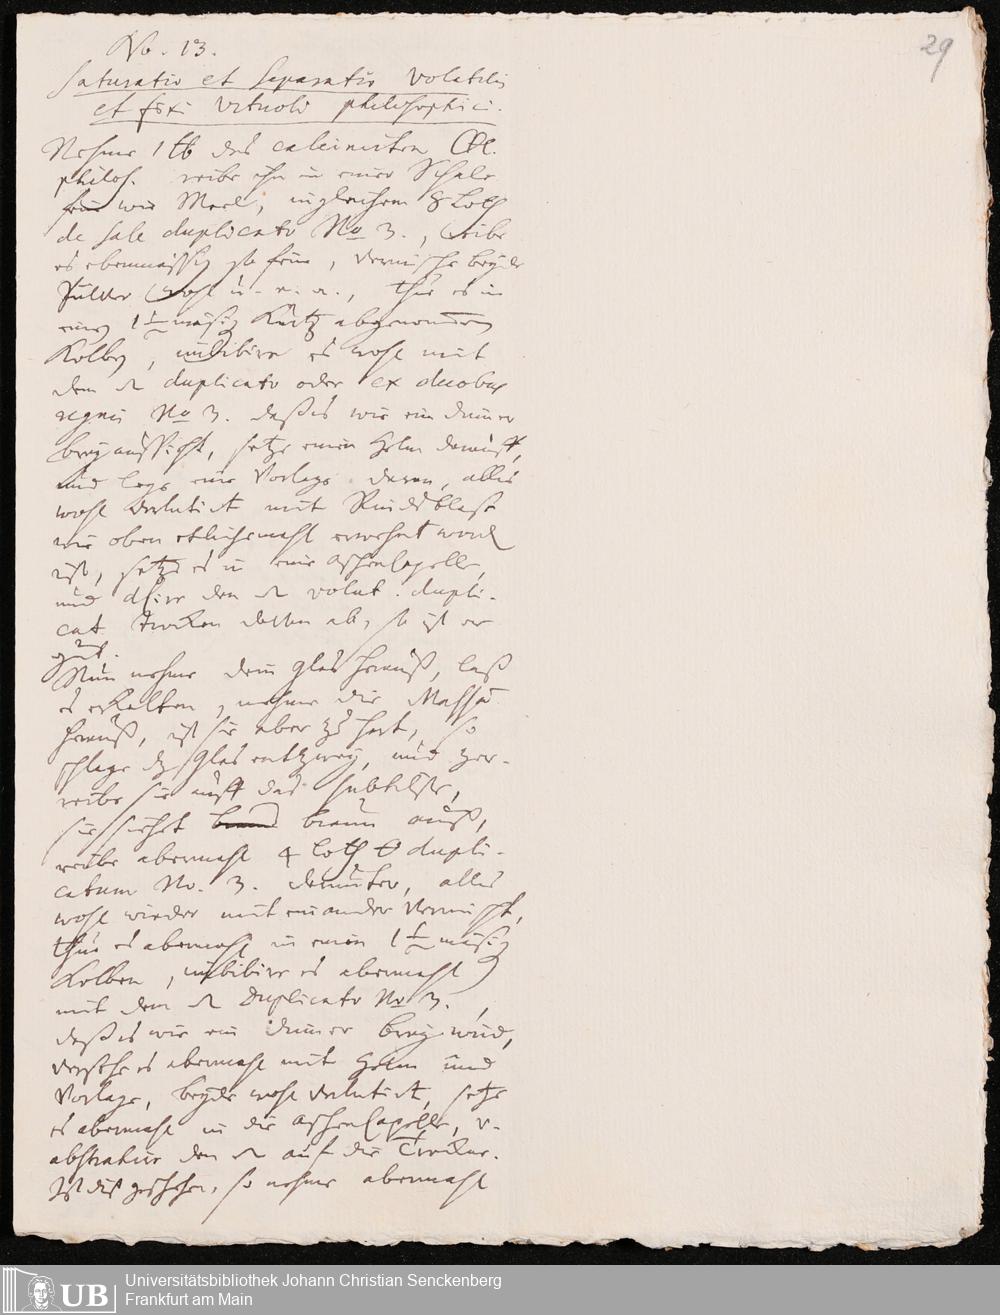 29
No. 13.
Saturatio et Separatio Volatilis
et fixi Vitrioli philosophici.
Nehme 1 lb des calcinirten
philos. reibe ihn in einer Schale
fein wie Meel, ingleichem 8 Loth
de sale duplicato No 3., reibe
es ebenmässig so fein, vermische beyde
Pulver wohl u. e. a., thue es in
einen 1 mäsig kurtz abgenommenen
Kolben, imbibire es wohl mit
dem duplicato oder ex duobus
regnis No 3. daß es wie ein dinner
brey aussicht, setze einen Helm darauff,
und lege eine Vorlage daran, alles
wohl verlutirt mit Rindsblase
wie oben etlichemahl erwehnt word
ist, setze es in eine aschenCapelle,
und den volat. dupli-
cat. trocken davon ab, so ist er
gut.
Nun nehme dein glas herauß, laß
es erkalten, nehme die Massa
herauß, ist sie aber zu hart, so
schlage dz glas entzwey, und zer-
reibe sie auff das subtilste,
sie siehet braun auß,
reibe abermahl 4 loth dupli-
catum No. 3. darunter, alles
wohl wieder mit einander vermischt,
thue es abermahl in einen 1 mäsig
Kolben, imbibire es abermahl
mit dem Duplicato No 3.,
daß es wie ein dinner brey wird,
versehe es abermahl mit Helm und
Vorlage, beyde wohl verlutirt, setze
es abermahl in die aschenCapelle, u.
abstrahire den auf die Trockne.
Ist dis geschehen, so nehme abermahl
UB
Universitätsbibliothek Johann Christian Senckenberg
Frankfurt am Main